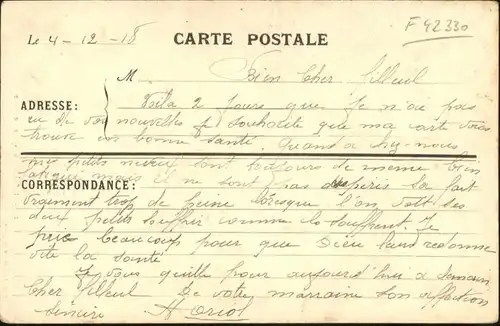 F 42330
Le 4-12-18 CARTE POSTALE
M
Bien Cher filleul
ADRESSE: Voila 2 jours que Je n'ai pas
eu de vos nouvelles Je souhaite que ma carte vous
trouve en bonne santé. Quand a chez nous
mes petits neveux sont toujours de meme bien
fatigués mais il ne sont pas
CORRESPONDANCE: sa fait
vraiment trop de peine lorsque l'on voit ses
deux petits souffrir comme ils souffrent. Je
prie beaucoup pour que Dieu leur redonne
vite la santé
Je vous quitte pour aujourd'hui a demain
Cher filleul De votre marraine son affection
sincère H Oriol